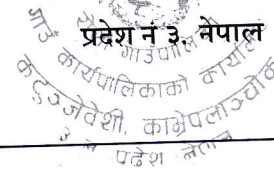 प्रदेश नं ३, नेपाल
गाउँपालिका
गाउँ कार्यपालिकाको कार्यालय
कटुञ्जेवेशी, काभ्रेपलाञ्चोक
३ नं प्रदेश नेपाल